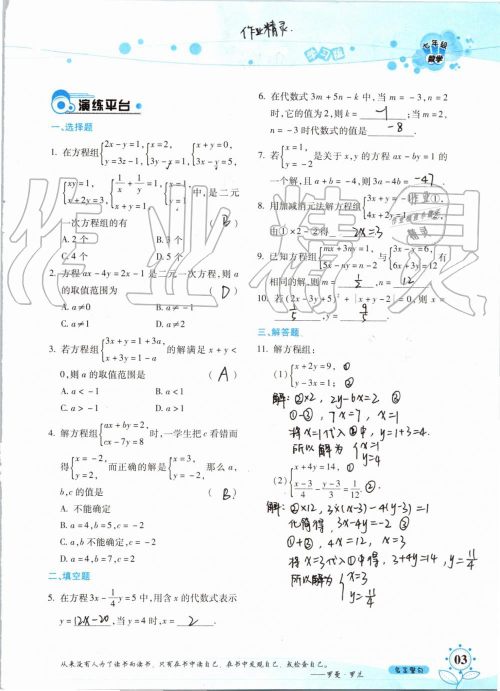 作业精灵
学习报
七年级
数学
演练平台
一、选择题
1. 在方程组{2x-y=1, y=3z-1, {x=2, 3y-x=1, {x+y=0, 3x-y=5,
{xy=1, x+2y=3, {1/x+1/y=1, x+y=1, {x=1, y=1 中,是二元
一次方程组的有 ( B )
A. 2个 B. 3个
C. 4个 D. 5个
2. 方程ax-4y=2x-1是二元一次方程,则a
的取值范围为 ( D )
A. a≠0 B. a≠-1
C. a≠1 D. a≠2
3. 若方程组{3x+y=1+3a, x+3y=1-a 的解满足x+y<
0,则a的取值范围是 ( A )
A. a<-1 B. a<1
C. a>-1 D. a>1
4. 解方程组{ax+by=2, cx-7y=8 时,一学生把c看错而
得{x=-2, y=2, 而正确的解是{x=3, y=-2, 那么a,
b,c的值是 ( B )
A. 不能确定
B. a=4,b=5,c=-2
C. a,b不能确定,c=-2
D. a=4,b=7,c=2
二、填空题
5. 在方程3x-1/4y=5中,用含x的代数式表示
y= 12x-20 ,当y=4时,x= 2 .
6. 在代数式3m+5n-k中,当m=-3,n=2
时,它的值为2,则k= -1 ;当m=2,
n=-3时代数式的值是 -8 .
7. 若{x=1, y=-2 是关于x,y的方程ax-by=1的
一个解,且a+b=-4,则3a-4b= -47
8. 用加减消元法解方程组{3x+y=-1 ①, 4x+2y=1 ②,
由①×2-②得 2x=-3
9. 已知方程组{mx+3ny=1, 5x-ny=n-2 与{3x-y=6, 6x+3y=12 有
相同的解,则m= 1/2 ,n= 12
10. 若(2x-3y+5)²+|x+y-2|=0,则x=
1/5 ,y= 9/5 .
三、解答题
11. 解方程组:
(1){x+2y=9, ① y-3x=1; ②
解:②×2, 2y-6x=2 ③
①-③, 7x=7, x=1
将x=1代入①中, y=1+3=4.
所以解为{x=1 y=4
(2){x+4y=14, ① (x-3)/4-(y-3)/3=1/12. ②
解:②×12, 3×(x-3)-4(y-3)=1
化简得, 3x-4y=-2 ③
①+③, 4x=12, x=3
将x=3代入①中得, 3+4y=14, y=11/4
所以解为{x=3 y=11/4
从来没有人为了读书而读书,只有在书中读自己,在书中发现自己,或检查自己。
——罗曼·罗兰
名言警句
03